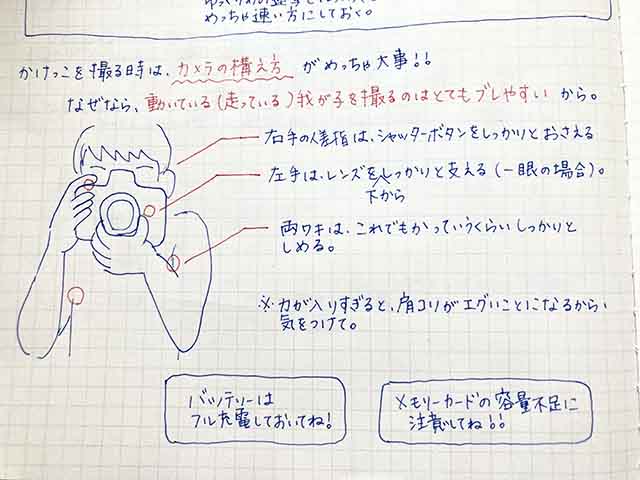 めっちゃ速い方にしておく。
かけっこを撮る時は、カメラの構え方 がめっちゃ大事!!
なぜなら、動いている(走っている)我が子を撮るのはとてもブレやすい から。
右手の人差指は、シャッターボタンをしっかりとおさえる
左手は、レンズをしっかりと支える(一眼の場合)。
下から
両ワキは、これでもかっていうくらいしっかりと
しめる。
※力が入りすぎると、肩コリがエグいことになるから、
気をつけて。
バッテリーは
フル充電しておいてね!
メモリーカードの容量不足に
注意してね!!